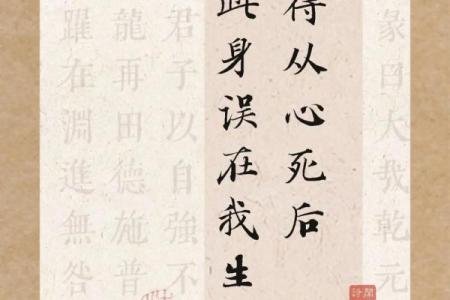 彖曰大哉乾元
得从心死后
此身误在我生
君子以自強不
龍再田德施普
躍在淵進無咎